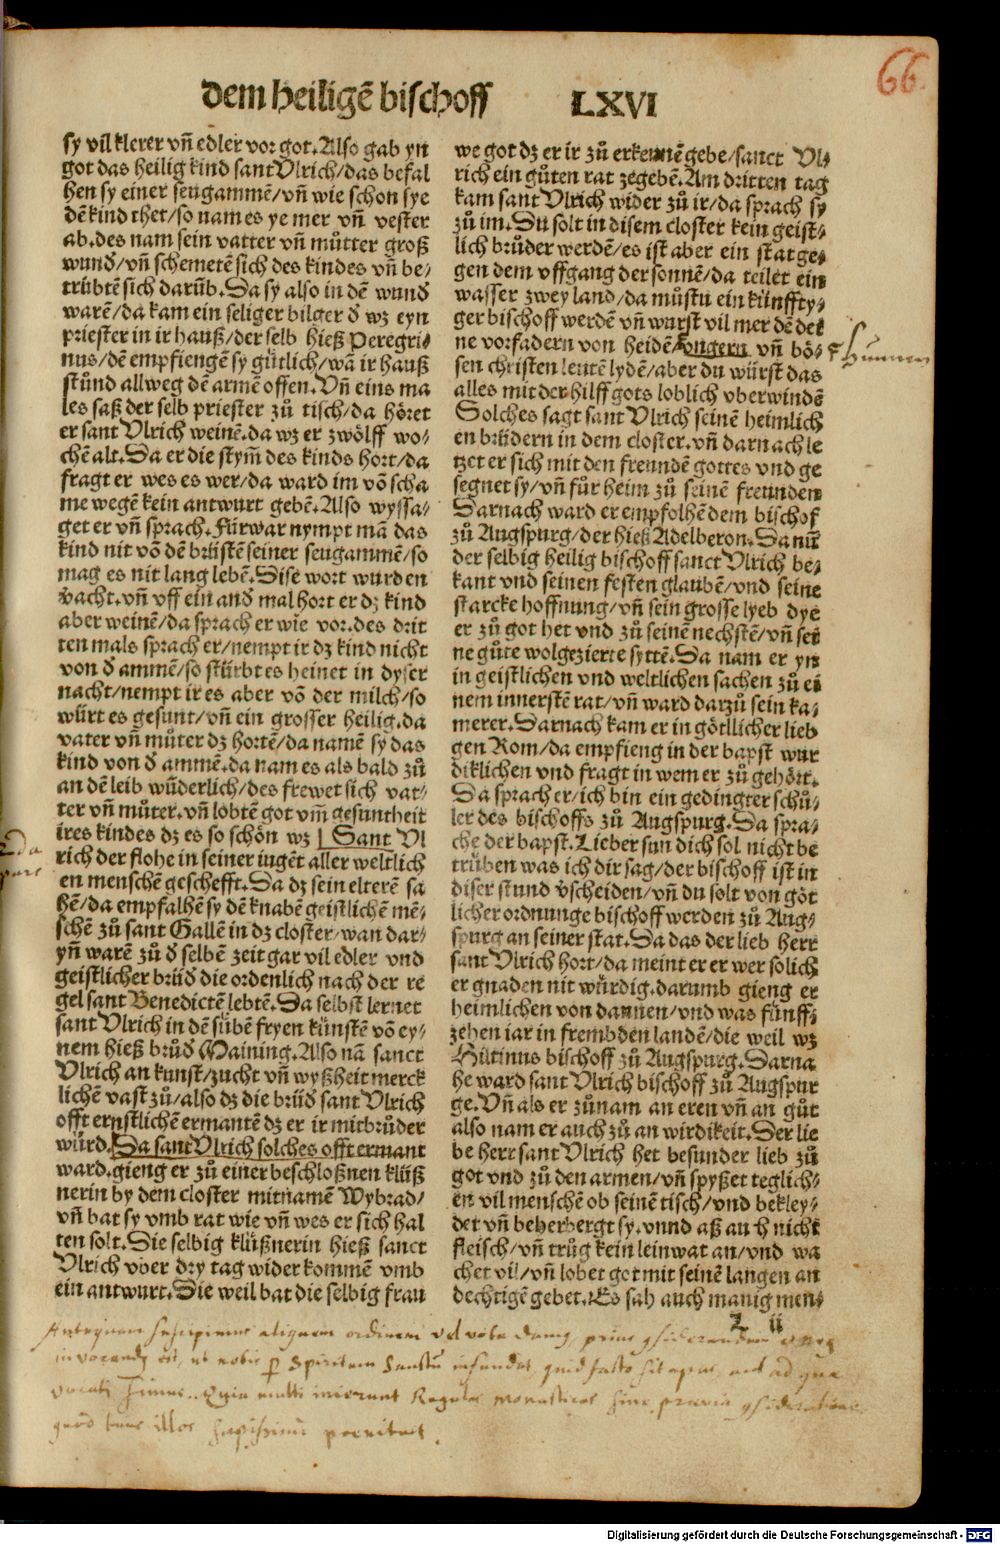 66
dem heiligē bischoff LXVI
sy vil klerer vñ edler vor got. Also gab yn
got das heilig kind sant Ulrich/das befal
hen sy einer seugammē/vñ wie schon sye
dē kind thet/so nam es ye mer vñ vester
ab. des nam sein vatter vñ můtter groß
wund/vñ schemetē sich des kindes vñ be/
trübtē sich darūb. Da sy also in dē wund
warē/da kam ein seliger bilger ď wz eyn
priester in ir hauß/der selb hieß Peregri/
nus/dē empfiengē sy gütlich/wā ir hauß
stůnd allweg dē armē offen. Vñ eins ma
les saß der selb priester zů tisch/da höret
er sant Ulrich weinē. da wz er zwölff wo/
chē alt. Da er die stym̄ des kinds hort/da
fragt er wes es wer/da ward im vō scha
me wegē kein antwurt gebē. Also wyssa/
get er vñ sprach. Fürwar nympt mā das
kind nit vō dē brüstē seiner seugammē/so
mag es nit lang lebē. Dise wort wurden
v̈acht. vñ vff ein and mal hort er dz kind
aber weinē/da sprach er wie vor. des drit
ten mals sprach er/nempt ir dz kind nicht
von ď ammē/so stürbt es heinet in dyser
nacht/nempt ir es aber vō der milch/so
würt es gesunt/vñ ein grosser heilig. da
vater vñ můter dz hortē/da namē sy das
kind von ď ammē. da nam es als bald zů
an dē leib wūderlich/des frewet sich vat/
ter vñ můter. vñ lobtē got vm̄ gesuntheit
ires kindes dz es so schön wz | Sant Ul
rich der flohe in seiner iugēt aller weltlich
en menschē geschefft. Da dz sein elterē sa
hē/da empfalhē sy dē knabē geistlichē mē/
schē zů sant Gallē in dz closter/wan dar/
yñ warē zů ď selbē zeit gar vil edler vnd
geistlicher brüď die ordenlich nach der re
gel sant Benedictē lebtē. Da selbst lernet
sant Ulrich in dē sübē fryen künstē vō ey/
nem hieß brůď Maining. Also nā sanct
Ulrich an kunst/zucht vñ wyßheit merck
lichē vast zů/also dz die brüď sant Ulrich
offt ernstlichē ermantē dz er ir mitbrůder
würd. Da sant Ulrich solches offt ermant
ward. gieng er zů einer beschloßnen klüß
nerin by dem closter mitnamē Wybrad/
vñ bat sy vmb rat wie vñ wes er sich hal
ten solt. Die selbig klüßnerin hieß sanct
Ulrich vber dry tag wider kommē vmb
ein antwurt. Die weil bat die selbig frau
we got dz er ir zů erkennē gebe/sanct Ul/
rich ein gůten rat zegebē. Am dritten tag
kam sant Ulrich wider zů ir/da sprach sy
zů im. Du solt in disem closter kein geist/
lich brůder werdē/es ist aber ein stat ge/
gen dem vffgang der sonnē/da teilet ein
wasser zwey land/da můstu ein künffty/
ger bischoff werdē vñ wurst vil mer dē dei
ne vorfadern von heidē vngern vñ bö/
Hunnen
sen christen leutē lydē/aber du würst das
alles mit der hilff gots loblich vberwindē
Solches sagt sant Ulrich seinē heimlich
en brüdern in dem closter. vñ darnach le
tzet er sich mit den freundē gottes vnd ge
segnet sy/vñ fůr heim zů seinē freunden
Darnach ward er empfolhē dem bischof
zů Augspurg/der hieß Adelberon. Da nun̄
der selbig heilig bischoff sanct Ulrich be/
kant vnd seinen festen glaubē/vnd seine
starcke hoffnung/vñ sein grosse lyeb dye
er zů got het vnd zů seinē nechstē/vñ sei
ne gůte wolgezierte syttē. Da nam er yn
in geistlichen vnd weltlichen sachen zů ei
nem innerstē rat/vñ ward darzů sein ka/
merer. Darnach kam er in götllicher lieb
gen Rom/da empfieng in der bapst wur
diklichen vnd fragt in wem er zů gehört.
Da sprach er/ich bin ein gedingter schů/
ler des bischoffs zů Augspurg. Da spra/
che der bapst. Lieber sun dich sol nicht be
trüben was ich dir sag/der bischoff ist in
diser stund v̈scheiden/vñ du solt von göt
licher ordnunge bischoff werden zů Aug/
spurg an seiner stat. Da das der lieb herr
sant Ulrich hort/da meint er er wer solich
er gnaden nit würdig. darumb gieng er
heimlichen von dannen/vnd was fünff/
zehen iar in frembden landē/die weil wz
Hiltinus bischoff zů Augspurg. Darna
he ward sant Ulrich bischoff zů Augspur
ge. Vñ als er zůnam an eren vñ an gůt
also nam er auch zů an wirdikeit. Der lie
be herr sant Ulrich het besunder lieb zů
got vnd zů den armen/vñ spyßet teglich/
en vil menschē ob seinē tisch/vnd bekley/
det vñ beherbergt sy. vnnd aß auch nicht
fleisch/vñ trůg kein leinwat an/vnd wa
chet vil/vñ lobet got mit seinē langen an
dechtigē gebet. Es sah auch manig men/
L ii
Antequam suscipimus aliquem ordinem vel
invocandus est, ut nobis Spiritum Sanctum infundat quid facto sit opus, ad quae
vocati simus. Quia multi inierunt Regulas monasticas sine praevia consideratione
quod tunc illos poenituit.
Digitalisierung gefördert durch die Deutsche Forschungsgemeinschaft - DFG